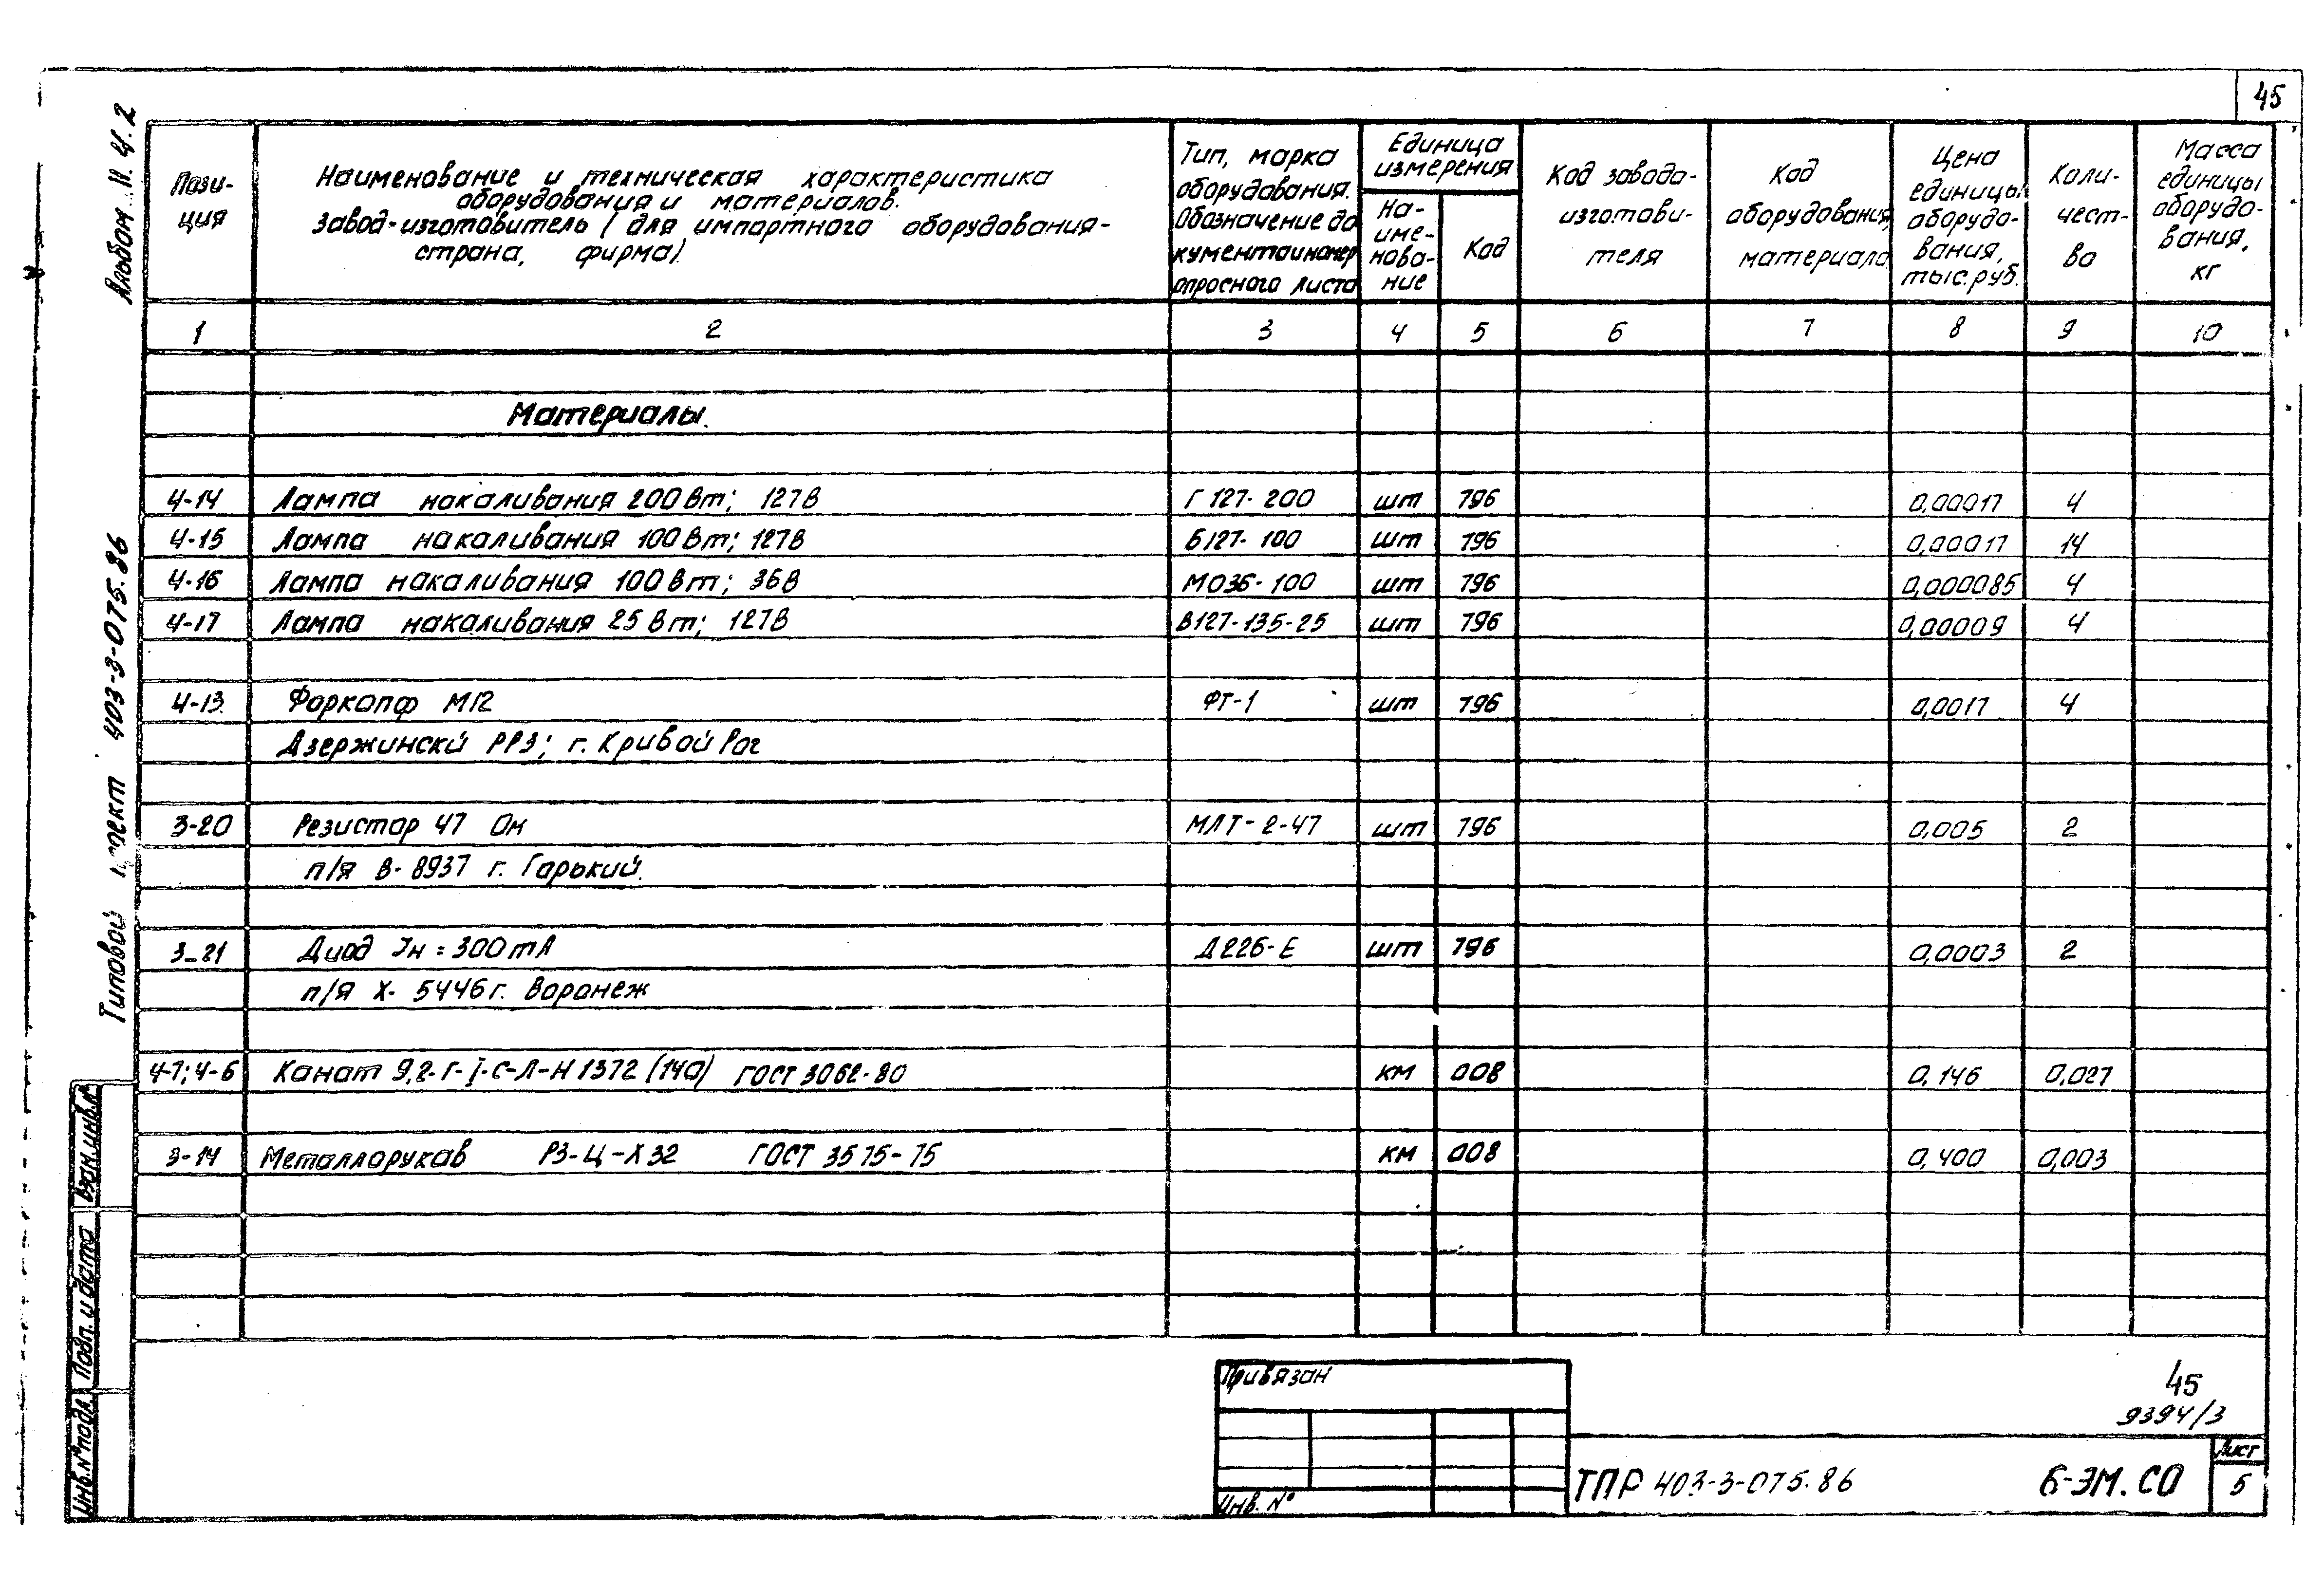 45
Альбом II ч. 2
Типовой проект 403-3-075.86
Пози-
ция
Наименование и техническая характеристика
оборудования и материалов.
Завод-изготовитель (для импортного оборудования-
страна, фирма)
Тип, марка
оборудования.
Обозначение до
кумента и номер
опросного листа
Единица
измерения
На-
име-
нова-
ние
Код
Код завода-
изготови-
теля
Код
оборудования,
материала
Цена
единицы
оборудо-
вания,
тыс.руб.
Коли-
чест-
во
Масса
единицы
оборудо-
вания,
кг
1 2 3 4 5 6 7 8 9 10
Материалы.
4-14 Лампа накаливания 200 Вт; 127В Г 127-200 шт 796 0,00017 4
4-15 Лампа накаливания 100 Вт; 127В Б127-100 шт 796 0,00017 14
4-16 Лампа накаливания 100 Вт; 36В МО36-100 шт 796 0,000085 4
4-17 Лампа накаливания 25 Вт; 127В В127-135-25 шт 796 0,00009 4
4-13 Форкопф М12 ФТ-1 шт 796 0,0017 4
Дзержински РРЗ; г. Кривой Рог
3-20 Резистор 47 Ом МЛТ-2-47 шт 796 0,005 2
п/я В-8937 г. Горький.
3-21 Диод Iн = 300 mA Д226-Е шт 796 0,0003 2
п/я Х-5446 г. Воронеж
4-7; 4-6 Канат 9,2-Г-I-С-Л-Н 1372 (140) ГОСТ 3062-80 км 008 0,146 0,027
3-14 Металлорукав РЗ-Ц-Х 32 ГОСТ 3575-75 км 008 0,400 0,003
Взам.инв.№
Подп. и дата
Инв.№ подл
Привязан
Инв. №
45
9394/3
ТПР 403-3-075.86
6-ЭМ.СО
Лист
5